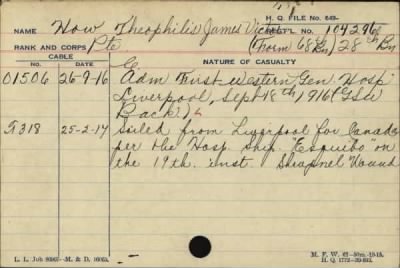 H. Q. FILE No. 649-
NAME How Theophilis James Victor REG'T'L. No. 104296
RANK AND CORPS Pte (Form 68 Bn) 28th Bn
CABLE NATURE OF CASUALTY
No. DATE
01506 26-9-16 Adm First Western Gen Hosp
Liverpool, Sept 18th 1916 (GSW
Back)
25-2-17 Sailed from Liverpool for Canada
per the Hosp. Ship. "Esquibo" on
the 19th inst Shrapnel Wound
L. L. Job M. & D.
M. F. W. H. Q.